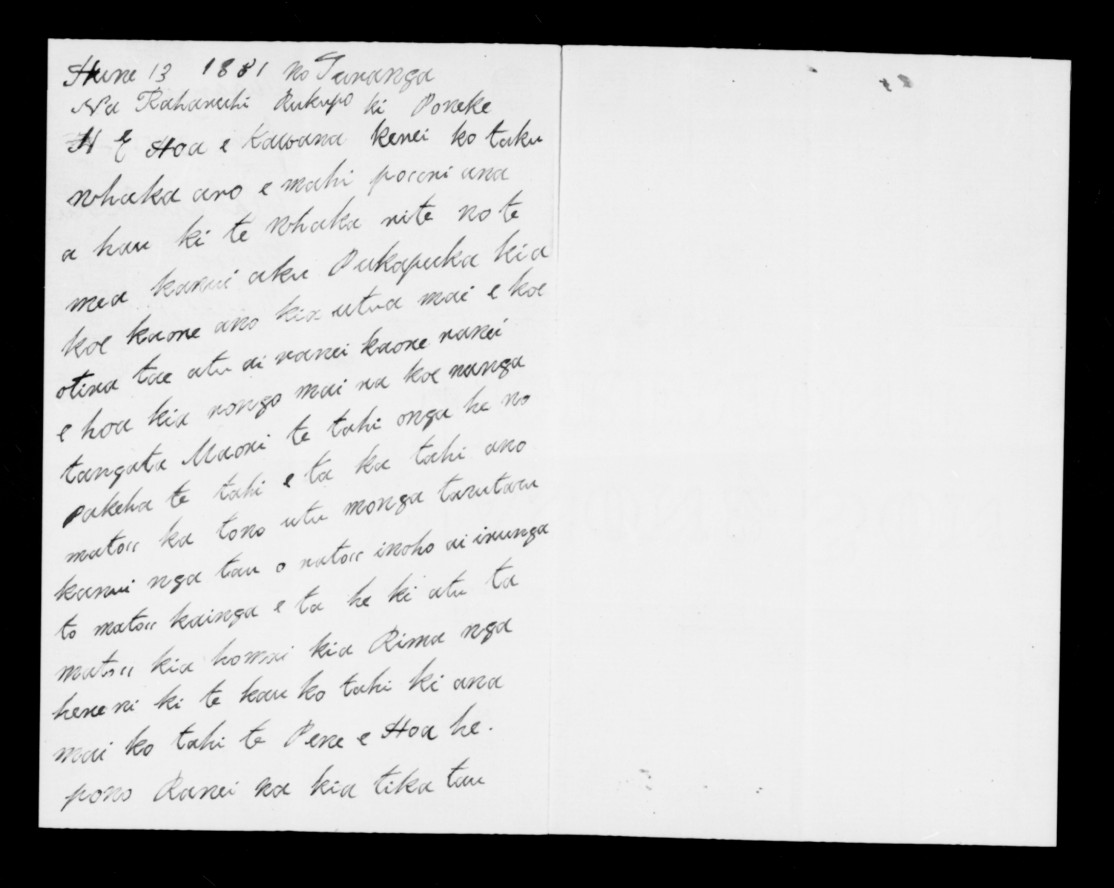 Hune 13 1881 no Turanga
Na Raharuhi Rukupo ki Poneke
E Hoa e Kawana kenei ko taku
whaka aro e mahi pocori ana
a hau ki te whaka rite no te
mea kanui aku Pukapuka kia
koe kaore ano kia utua mai e koe
otira tae atu ai ranei kaore ranei
e hoa kia rongo mai na koe nanga
tangata Maori te tahi onga he no
pakeha te tahi e ta ka tahi ano
matou ka tono utu monga tarutaru
kanui nga tau o ratou inoho ai irunga
to matou kainga e ta he ki atu ta
matou kia homai kia Rima nga
hereni ki te kau ko tahi ki ana
mai ko tahi te Pene e Hoa he.
pono Ranei na kia tika tau